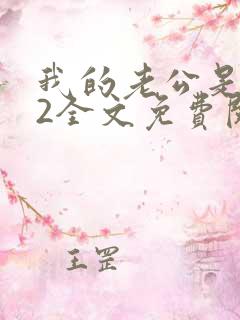 我的老公是
2全文免費
王罡